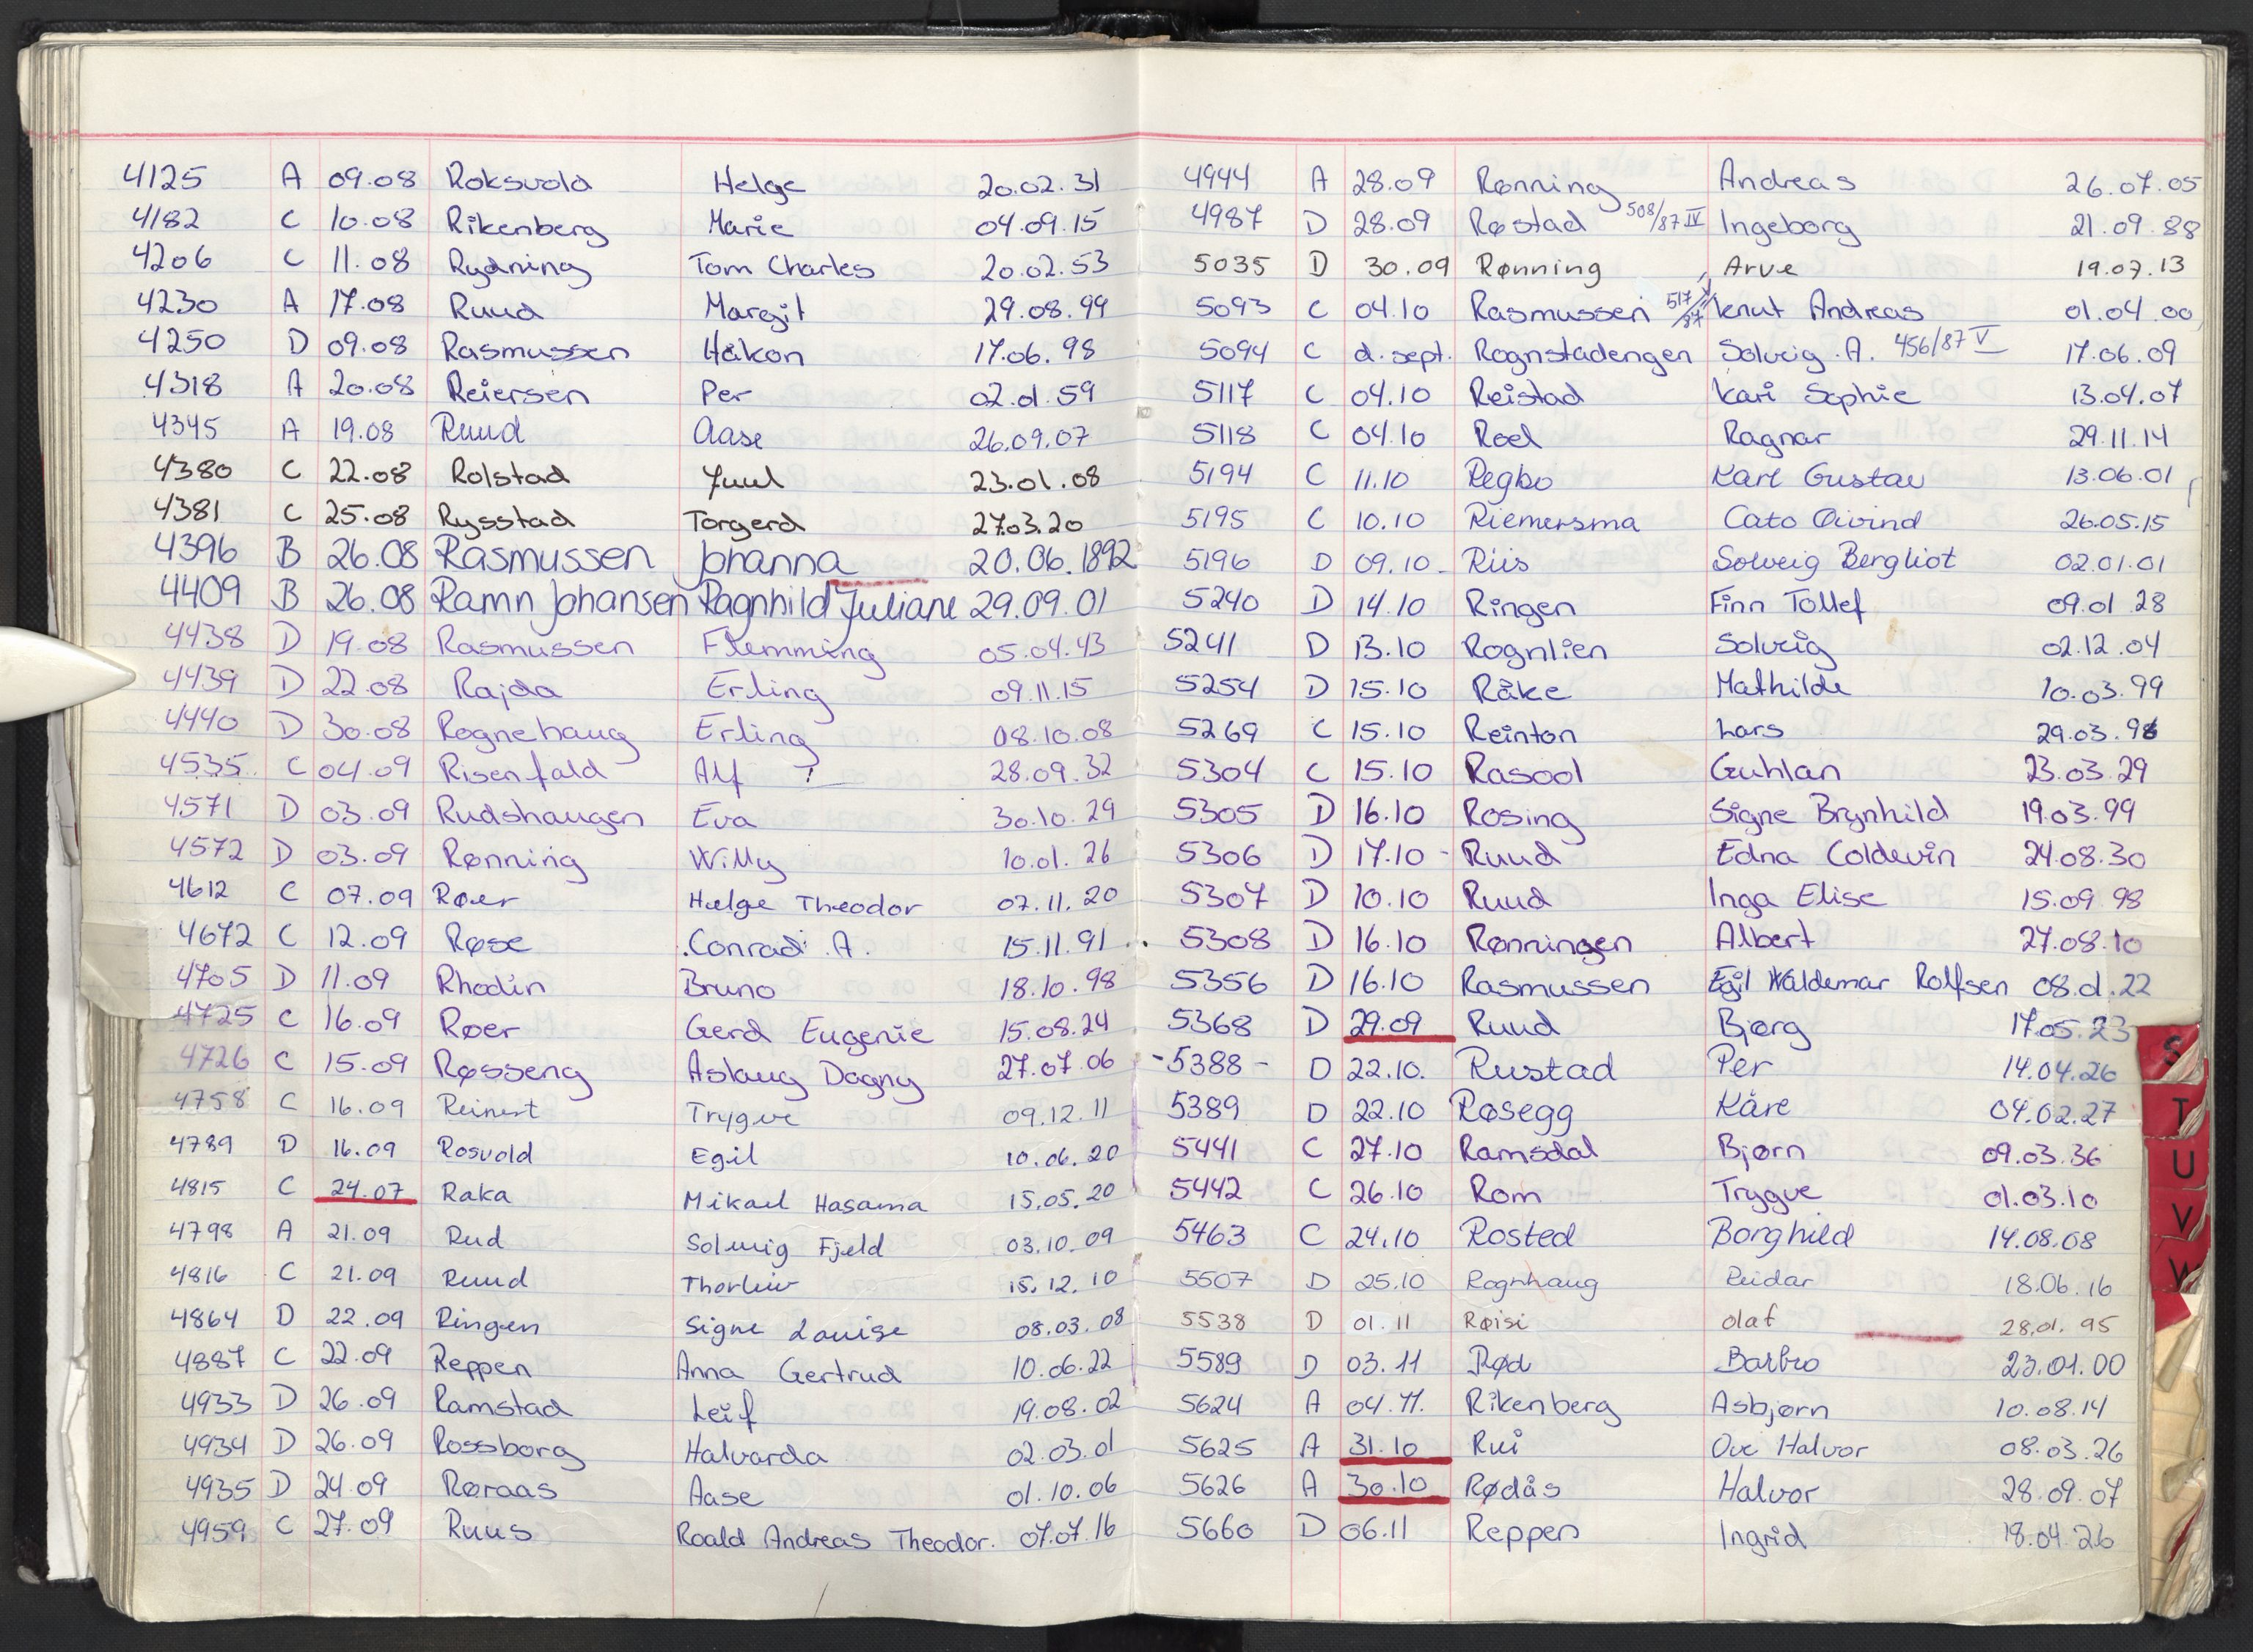 4125 A 09.08 Roksvold Helge 20.02.31
4182 C 10.08 Rikenberg Marie 04.09.15
4206 C 11.08 Rydning Tom Charles 20.02.53
4230 A 17.08 Ruud Margit 29.08.99
4250 D 09.08 Rasmussen Håkon 17.06.98
4318 A 20.08 Reiersen Per 02.01.59
4345 A 19.08 Ruud Aase 26.09.07
4380 C 22.08 Rolstad Juul 23.01.08
4381 C 25.08 Rysstad Torgerd 27.03.20
4396 B 26.08 Rasmussen Johanna 20.06.1892
4409 B 26.08 Ramn Johansen Ragnhild Juliane 29.09.01
4438 D 19.08 Rasmussen Flemming 05.04.43
4439 D 22.08 Rajda Erling 09.11.15
4440 D 30.08 Rognehaug Erling 08.10.08
4535 C 04.09 Risenfald Alf 28.09.32
4571 D 03.09 Rudshaugen Eva 30.10.29
4572 D 03.09 Rønning Willy 10.01.26
4612 C 07.09 Røer Helge Theodor 07.11.20
4672 C 12.09 Røse Conrad A. 15.11.91
4705 D 11.09 Rhodin Bruno 18.10.98
4725 C 16.09 Røer Gerd Eugenie 15.08.24
4726 C 15.09 Røsseng Aslaug Dagny 27.07.06
4758 C 16.09 Reinert Trygve 09.12.11
4789 D 16.09 Rosvold Egil 10.06.20
4815 C 24.07 Raka Mikael Hasama 15.05.20
4798 A 21.09 Rud Solveig Fjeld 03.10.09
4816 C 21.09 Ruud Thorleiv 15.12.10
4864 D 22.09 Ringen Signe Louise 08.03.08
4887 C 22.09 Reppen Anna Gertrud 10.06.22
4933 D 26.09 Ramstad Leif 19.08.02
4934 D 26.09 Rossborg Halvarda 02.03.01
4935 D 24.09 Røraas Aase 01.10.06
4959 C 27.09 Ruus Roald Andreas Theodor. 07.07.16
4944 A 28.09 Rønning Andreas 26.07.05
4987 D 28.09 Røstad 508/87 IV Ingeborg 21.09.88
5035 D 30.09 Rønning Arve 19.07.13
5093 C 04.10 Rasmussen 517/87 V Knut Andreas 01.04.00
5094 C d. sept. Rognstadengen Solveig A. 456/87 V 17.06.09
5117 C 04.10 Reistad Kari Sophie 13.04.07
5118 C 04.10 Roel Ragnar 29.11.14
5194 C 11.10 Regbo Karl Gustav 13.06.01
5195 C 10.10 Riemersma Cato Øivind 26.05.15
5196 D 09.10 Riis Solveig Bergliot 02.01.01
5240 D 14.10 Ringen Finn Tollef 09.01.28
5241 D 13.10 Rognlien Solveig 02.12.04
5254 D 15.10 Råke Mathilde 10.03.99
5269 C 15.10 Reinton Lars 29.03.96
5304 C 15.10 Rasool Guhlan 23.03.29
5305 D 16.10 Rosing Signe Brynhild 19.03.99
5306 D 17.10 - Ruud Edna Coldevin 24.08.30
5307 D 10.10 Ruud Inga Elise 15.09.98
5308 D 16.10 Rønningen Albert 27.08.10
5356 D 16.10 Rasmussen Egil Waldemar Rolfsen 08.01.22
5368 D 29.09 Ruud Bjørg 17.05.23
-5388- D 22.10. Rustad Per 14.04.26
5389 D 22.10 Røsegg Kåre 04.02.27
5441 C 27.10 Ramsdal Bjørn 09.03.36
5442 C 26.10 Rom Trygve 01.03.10
5463 C 24.10 Rosted Borghild 14.08.08
5507 D 25.10 Rognhaug Reidar 18.06.16
5538 D 01.11 Røisi Olaf 28.01.95
5589 D 03.11 Rød Barbro 23.01.00
5624 A 04.11. Rikenberg Asbjørn 10.08.14
5625 A 31.10 Rui Ove Halvor 08.03.26
5626 A 30.10 Rødås Halvor 28.09.07
5660 D 06.11 Reppen Ingrid 18.04.26
S
T
U
V
W